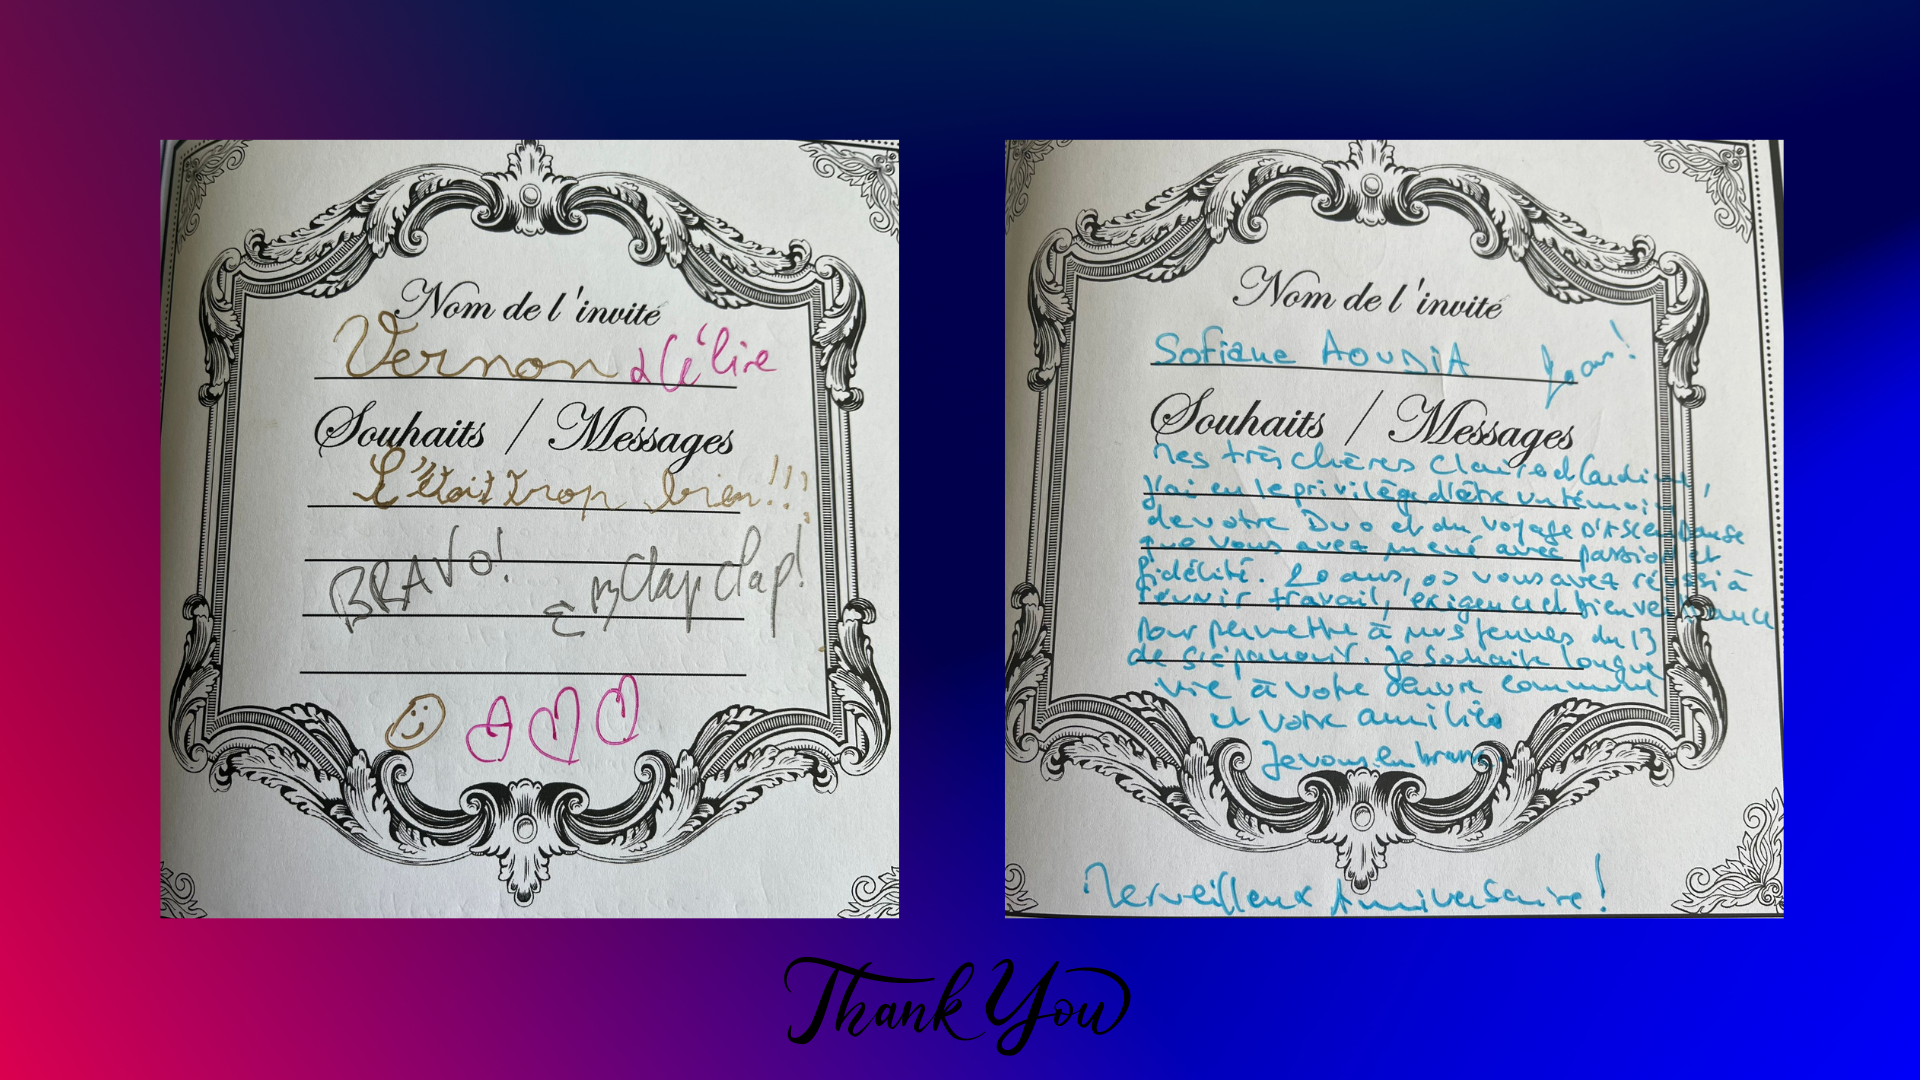 Nom de l'invité
Vernon
Souhaits / Messages
C'était trop bien!!!
BRAVO!
Clap Clap!
Nom de l'invité
Sofiane AOUDIA
Souhaits / Messages
Mes très chères Claire et
J'ai eu le privilège d'être un témoin
de votre Duo et du voyage D'Ascendanse
que vous avez mené avec passion et
fidélité. 20 ans, où vous avez réussi à
réunir travail, exigence et bienveillance
pour permettre à nos jeunes du 13
de s'épanouir. Je souhaite longue
vie à votre oeuvre commune
et votre amitiés
Je vous embrasse
Merveilleux Anniversaire!
Thank You